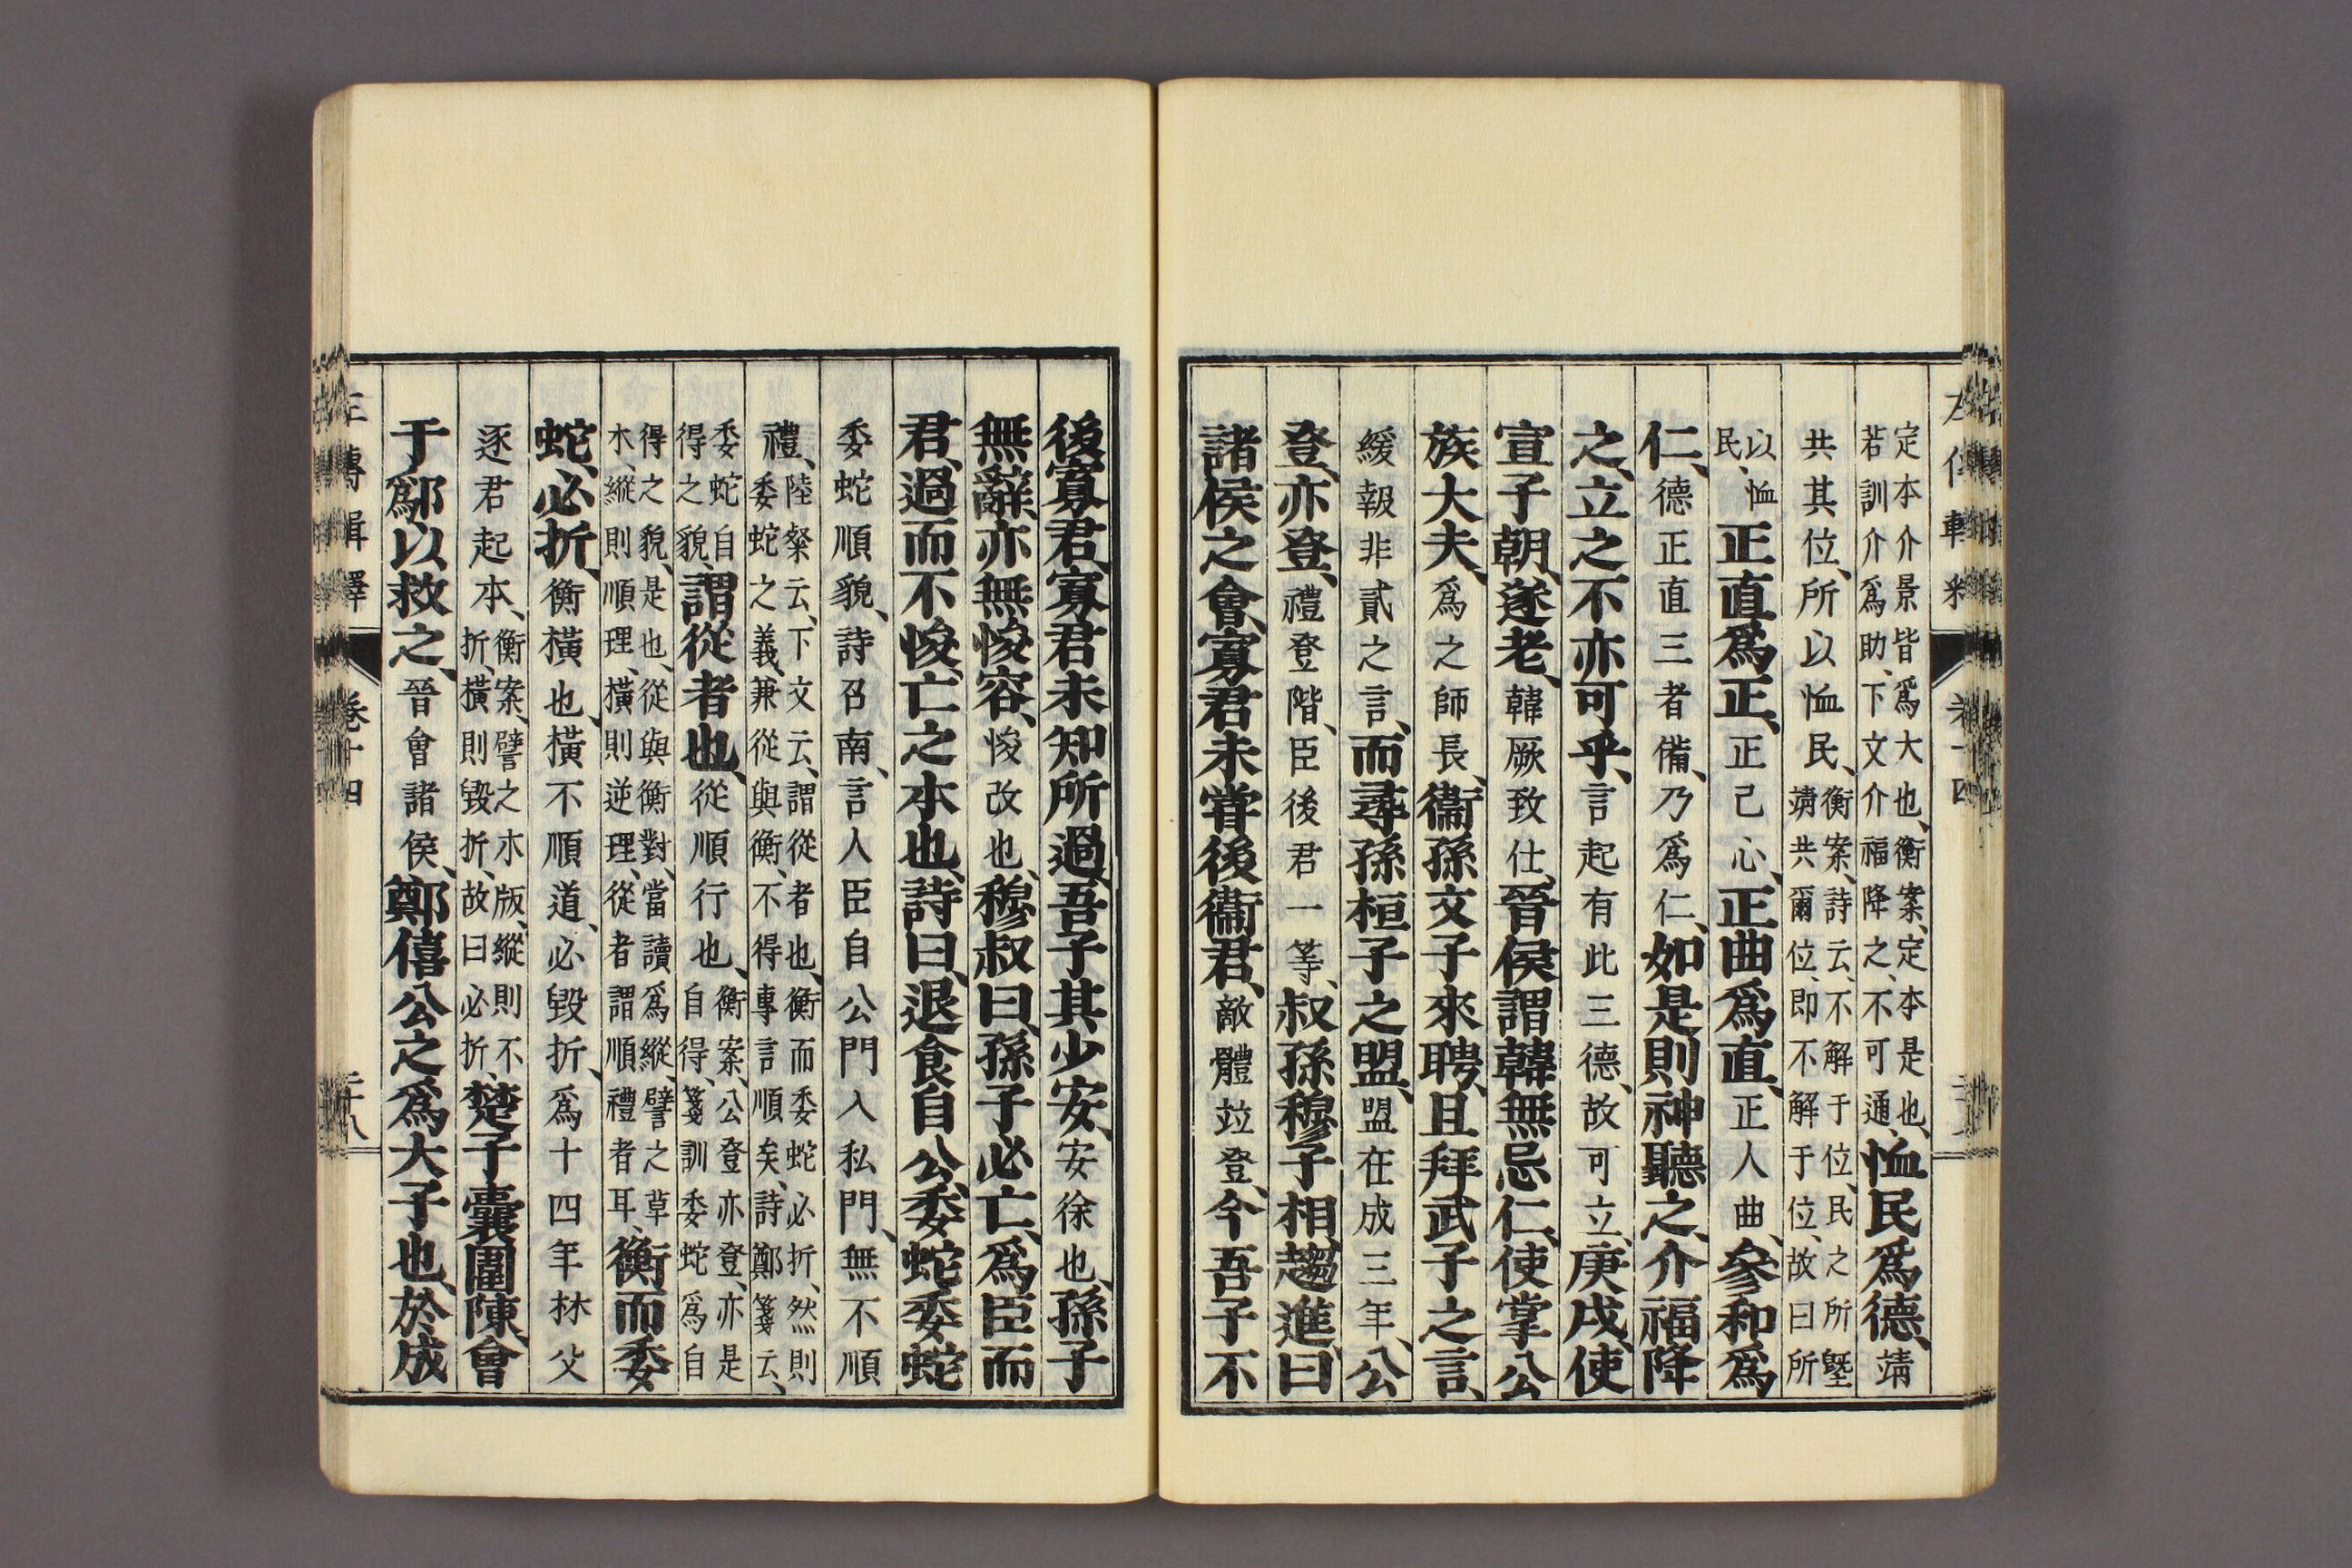 定本介景皆爲大也、衡案、定本是也、
若訓介爲助、下文介福降之、不可通、恤民爲德、靖
共其位、所以恤民、衡案、詩云、不解于位、民之所墍
靖共爾位、即不解于位、故曰所
以恤
民、正直爲正、正己心、正曲爲直、正人曲、參和爲
仁、德正直三者備、乃爲仁、如是則神聽之、介福降
之、立之不亦可乎、言起有此三德、故可立、庚戌、使
宣子朝、遂老、韓厥致仕、晉侯謂韓無忌仁、使掌公
族大夫、爲之師長、衞孫文子來聘、且拜武子之言、
緩報非貳之言、而尋孫桓子之盟、盟在成三年、公
登、亦登、禮登階、臣後君一等、叔孫穆子相、趨進、曰
諸侯之會、寡君未甞後衞君、敵體竝登、今吾子不
後寡君、寡君未知所過、吾子其少安、安徐也、孫子
無辭、亦無悛容、悛改也、穆叔曰、孫子必亡、爲臣而
君、過而不悛、亡之本也、詩曰、退食自公、委蛇委蛇
委蛇順貌、詩召南、言人臣自公門入私門、無不順
禮、陸粲云、下文云、謂從者也、衡而委蛇必折、然則
委蛇之義、兼從與衡、不得專言順矣、詩鄭箋云、
委蛇自
得之貌、謂從者也、從順行也、衡案、公登亦登、亦是
自得、箋訓委蛇爲自
得之貌、是也、從與衡對、當讀爲縱、譬之草
木、縱則順理、橫則逆理、從者謂順禮者耳、衡而委
蛇、必折、衡橫也、橫不順道、必毀折、爲十四年林父
逐君起本、衡案、譬之木版、縱則不
折、橫則毀折、故曰必折、楚子囊圍陳、會
于鄬以救之、晉會諸侯、鄭僖公之爲大子也、於成
左傳輯釋 卷十四 二十八